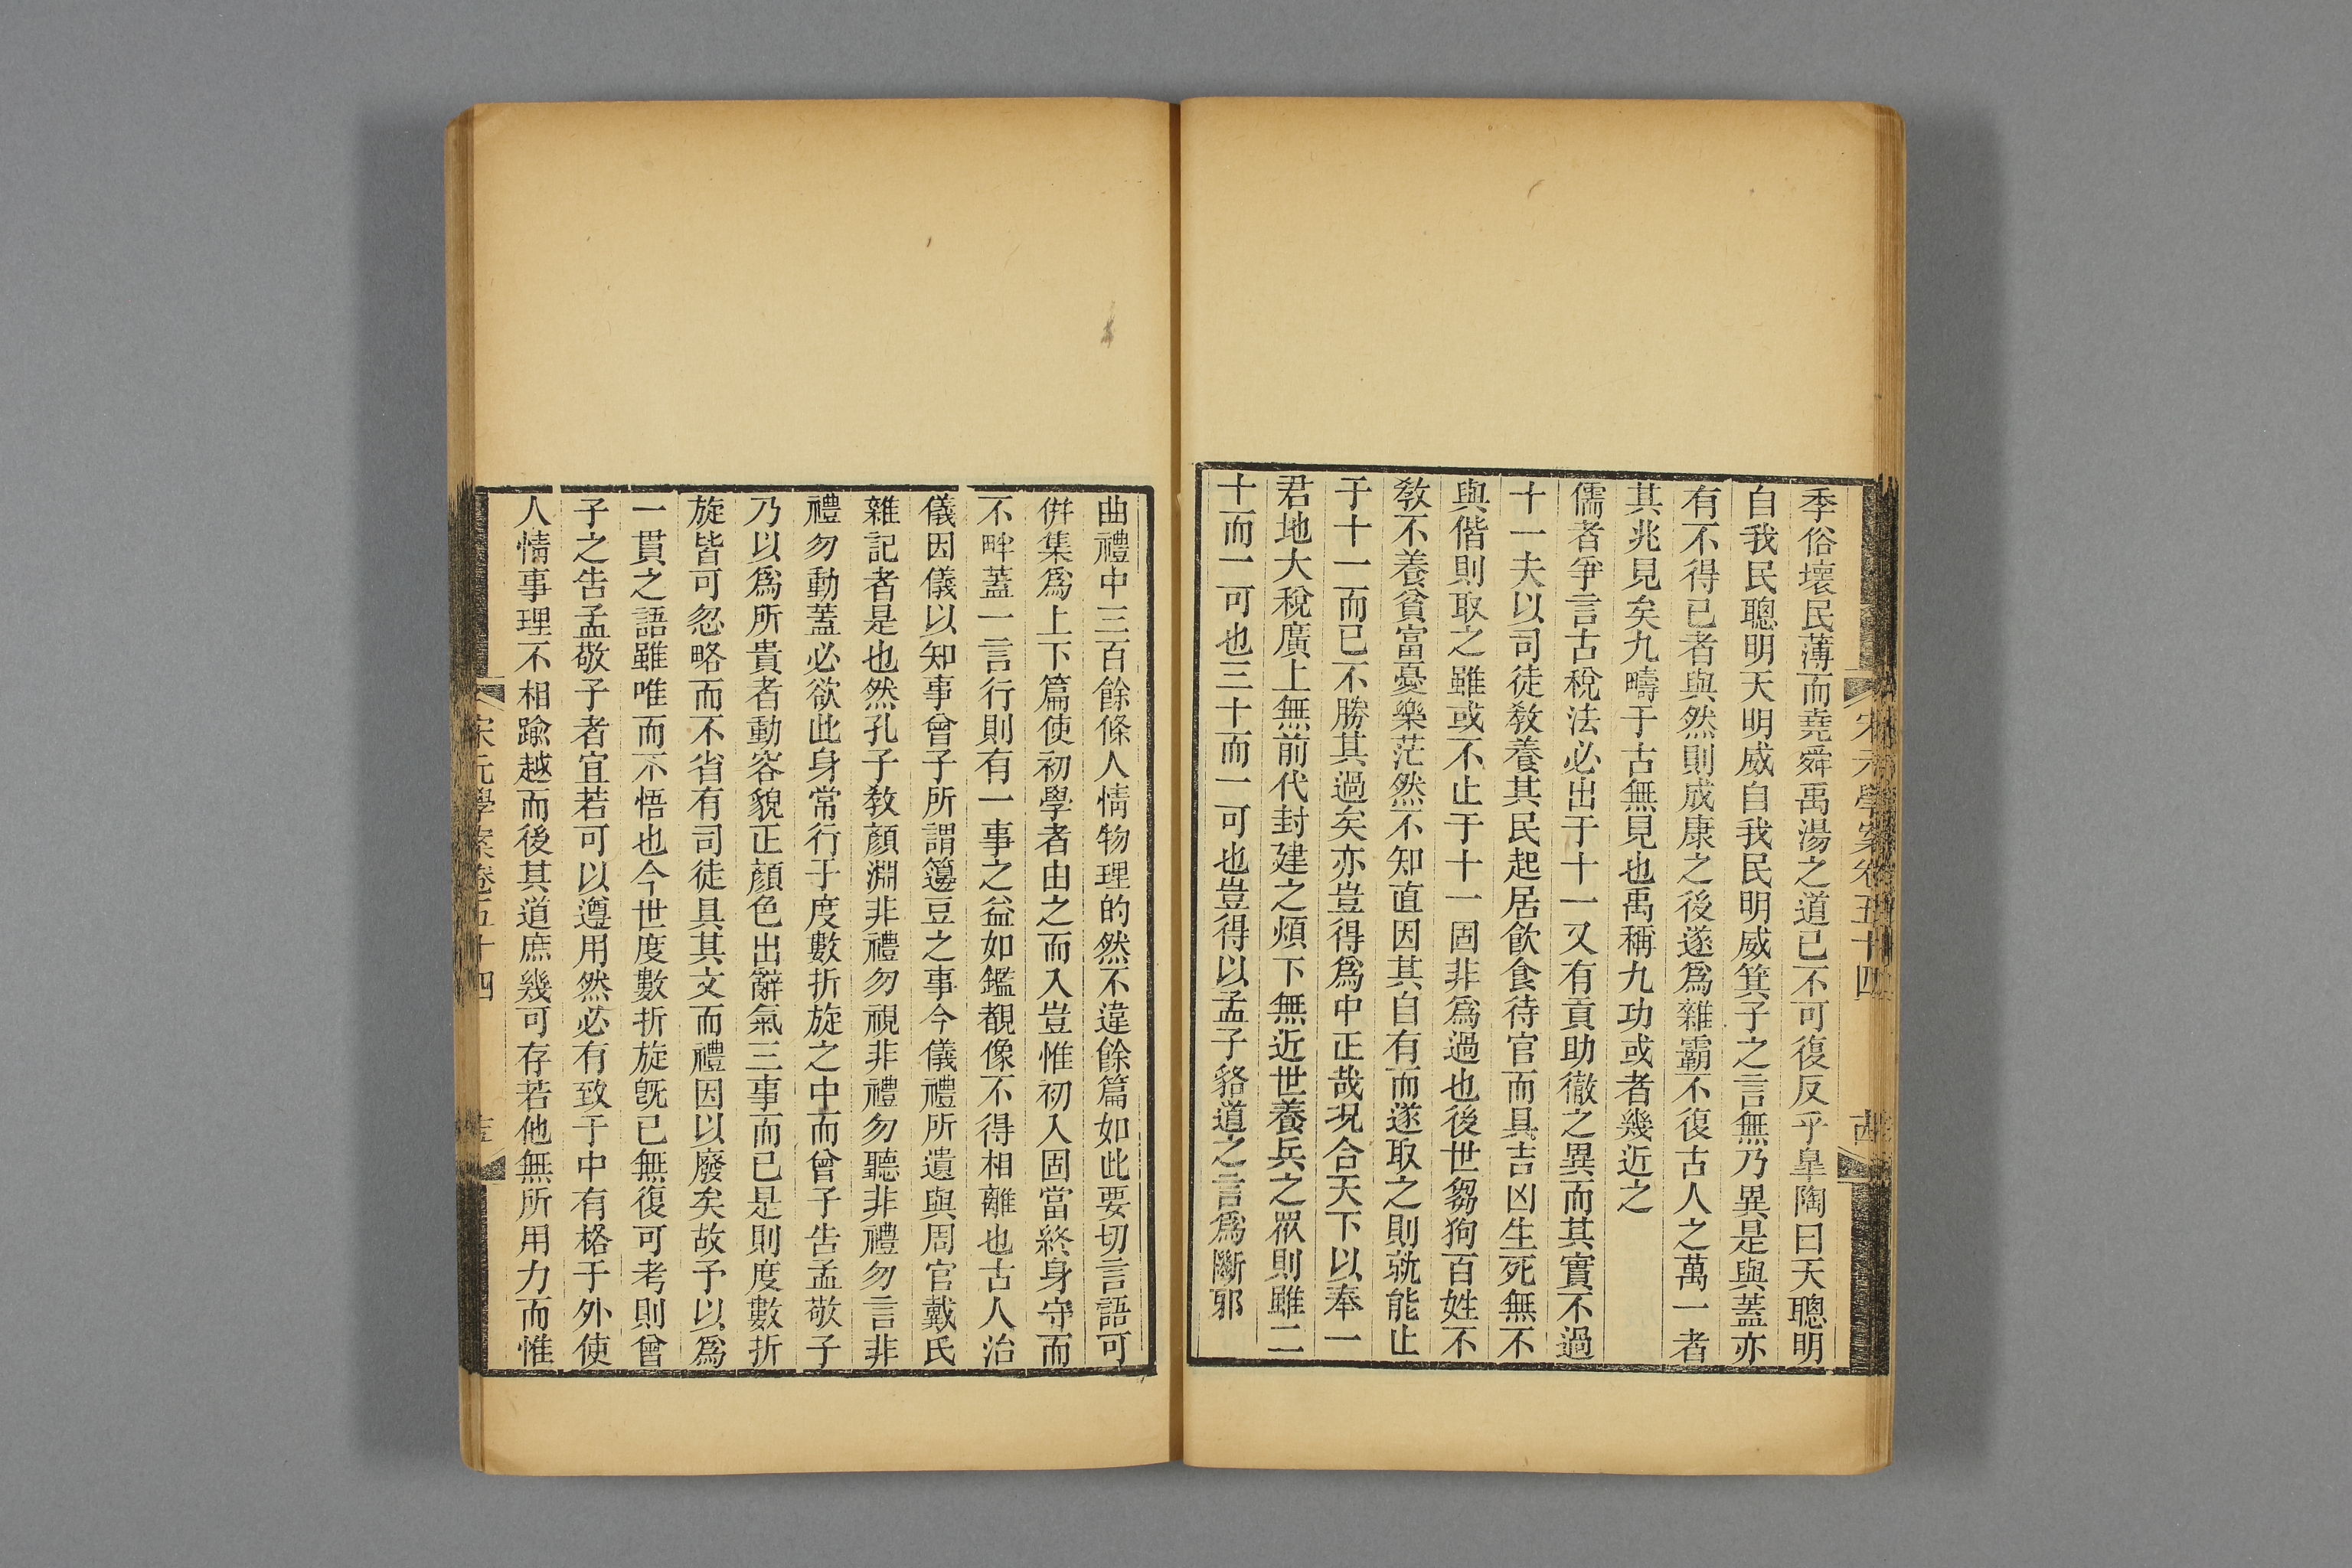 宋元學案卷五十四
季俗壞民薄而堯舜禹湯之道已不可復反乎皐陶曰天聰明
自我民聰明天明威自我民明威箕子之言無乃異是與蓋亦
有不得已者與然則成康之後遂爲雜霸不復古人之萬一者
其兆見矣九疇于古無見也禹稱九功或者幾近之
儒者爭言古稅法必出于十一又有貢助徹之異而其實不過
十一夫以司徒敎養其民起居飮食待官而具吉凶生死無不
與偕則取之雖或不止于十一固非爲過也後世芻狗百姓不
敎不養貧富憂樂茫然不知直因其自有而遂取之則就能止
于十一而已不勝其過矣亦豈得爲中正哉况合天下以奉一
君地大稅廣上無前代封建之煩下無近世養兵之眾則雖二
十而一可也三十而一可也豈得以孟子貉道之言爲斷邪
曲禮中三百餘條人情物理的然不違餘篇如此要切言語可
倂集爲上下篇使初學者由之而入豈惟初入固當終身守而
不畔蓋一言行則有一事之益如鑑覩像不得相離也古人治
儀因儀以知事曾子所謂籩豆之事今儀禮所遺與周官戴氏
雜記者是也然孔子敎顏淵非禮勿視非禮勿聽非禮勿言非
禮勿動蓋必欲此身常行于度數折旋之中而曾子告孟敬子
乃以爲所貴者動容貌正顏色出辭氣三事而已是則度數折
旋皆可忽略而不省有司徒具其文而禮因以廢矣故予以爲
一貫之語雖唯而不悟也今世度數折旋旣已無復可考則曾
子之告孟敬子者宜若可以遵用然必有致于中有格于外使
人情事理不相踰越而後其道庶幾可存若他無所用力而惟
宋元學案卷五十四